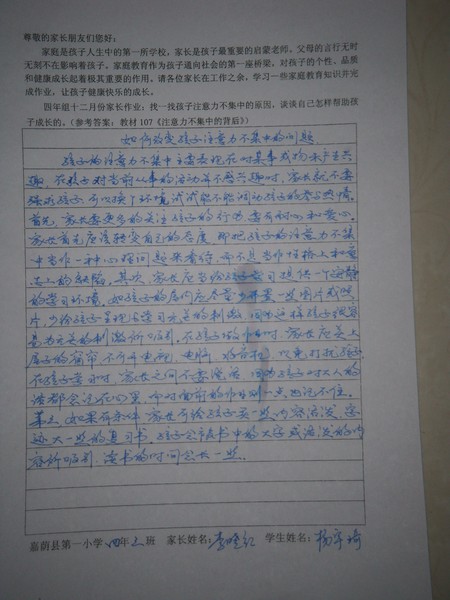 尊敬的家长朋友们您好：
家庭是孩子人生中的第一所学校，家长是孩子最重要的启蒙老师。父母的言行无时
无刻不在影响着孩子。家庭教育作为孩子通向社会的第一座桥梁，对孩子的个性、品质
和健康成长起着极其重要的作用。请各位家长在工作之余，学习一些家庭教育知识并完
成作业，让孩子健康快乐的成长。
四年组十二月份家长作业：找一找孩子注意力不集中的原因，谈谈自己怎样帮助孩
子成长的。（参考答案：教材107《注意力不集中的背后》）
如何改变孩子注意力不集中的问题
孩子的注意力不集中主要表现在对某事或物未产生兴
趣，在孩子对当前从事的活动并不感兴趣时，家长就不要
强求孩子，可以换个环境试试能不能调动孩子的参与热情。
首先，家长要更多的关注孩子的行为，要有耐心和爱心。
家长首先应该转变自己的态度，即把孩子的注意力不集
中当作一种心理问题起来看待，而不是当作性格上和意
志上的缺陷。其次，家长应当给孩子学习提供一个安静
的学习环境，如孩子的房间应尽量少布置一些图片或照
片，少给孩子呈现与学习无关的刺激，因为这样孩子很容
易为无关的刺激所吸引。在孩子做作业时，家长应关上
屋子的窗帘，不打开电视、电脑、收音机，以免打扰孩子，
在孩子学习时，家长之间不要谈话，因为孩子对大人的
话都会记在心里，而对当前的作业则一点也记不住。
第三，如果有条件，家长可给孩子买一些内容活泼，字
迹大一些的复习书，孩子会被书中的大字或活泼的内
容所吸引，读书的时间会长一些。
嘉荫县第一小学 四年三班 家长姓名：李晓红 学生姓名：杨宇琦